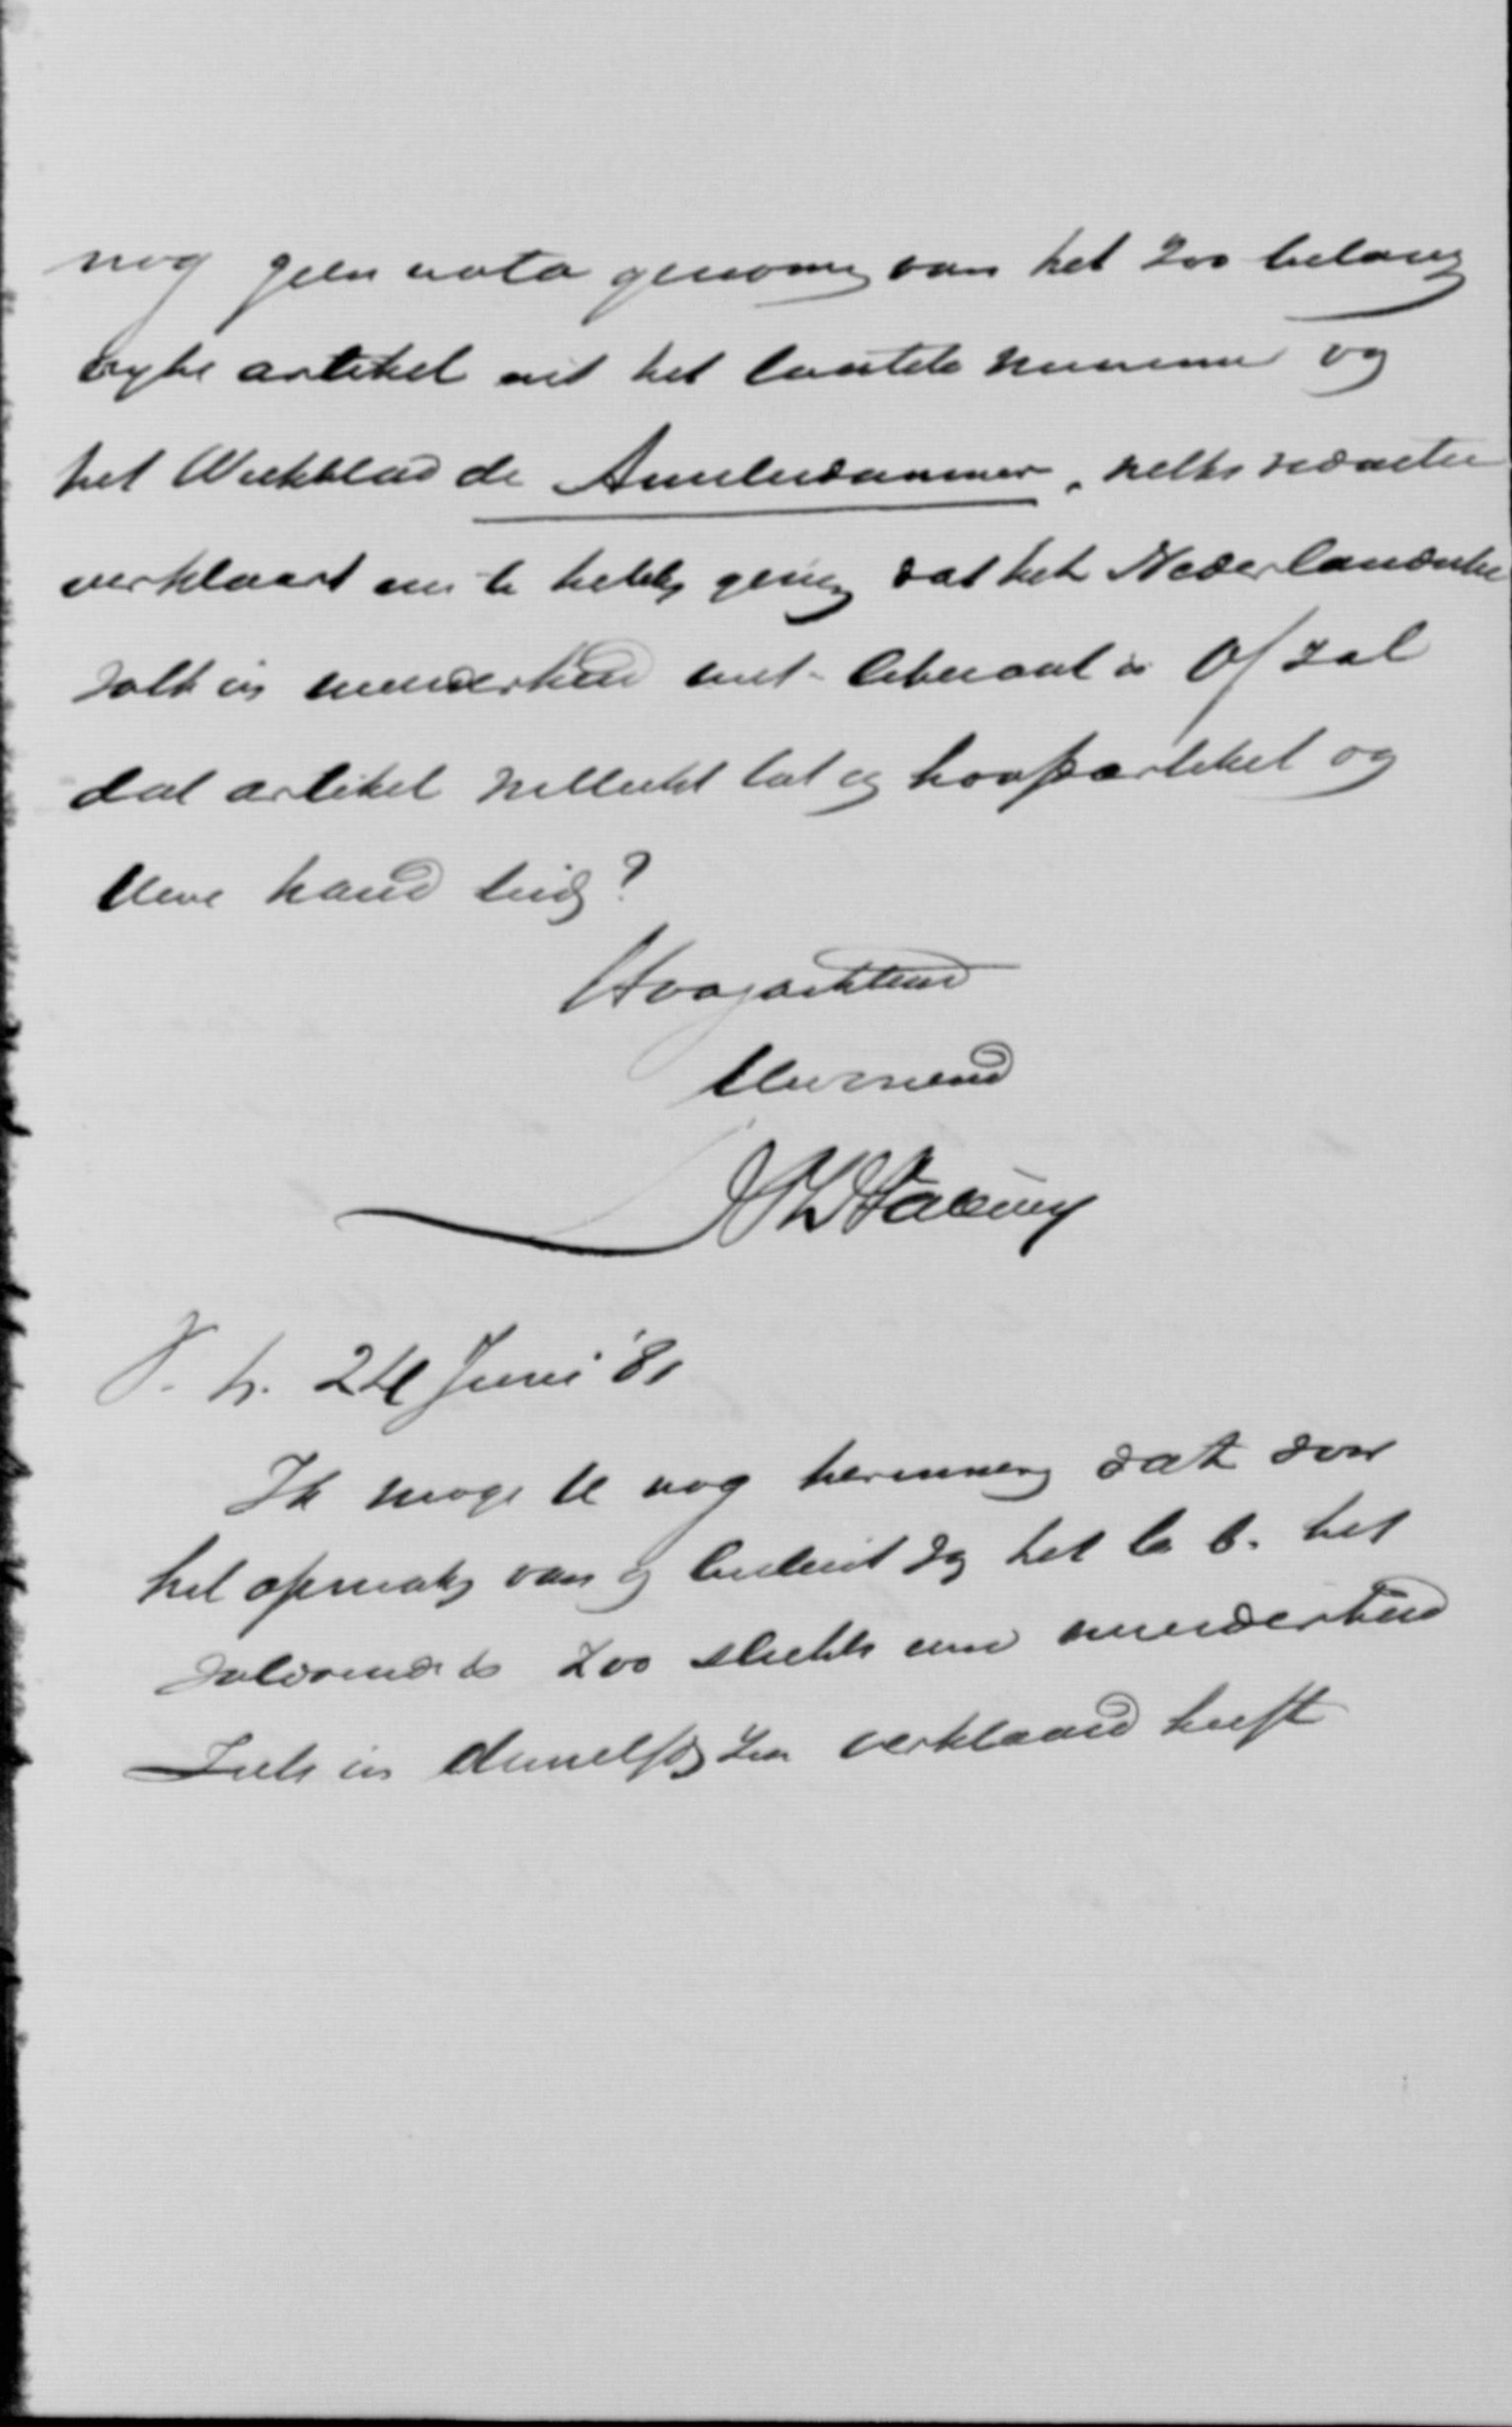 nog geen nota genomen van het zoo belang
ryke artikel uit het laatste nummer van
het Weekblad de Amsterdammer, welks redactie
verklaart in te hebben gezien dat het Nederlandsche
volk in meerderheid niet-liberaal is Of zal
dat artikel wellicht tot een hoofdartikel van
Uwe hand leiden?
Hoogachtend
Uw vriend
24 Juni '81
Ik moge U nog herinneren dat door
het opmaken van het
zoo slechts eene meerderheid
zich in verklaard heeft